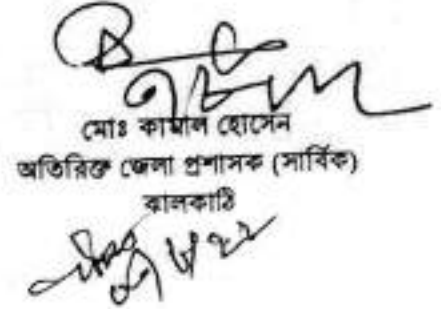 মোঃ কামাল হোসেন
অতিরিক্ত জেলা প্রশাসক (সার্বিক)
ঝালকাঠি